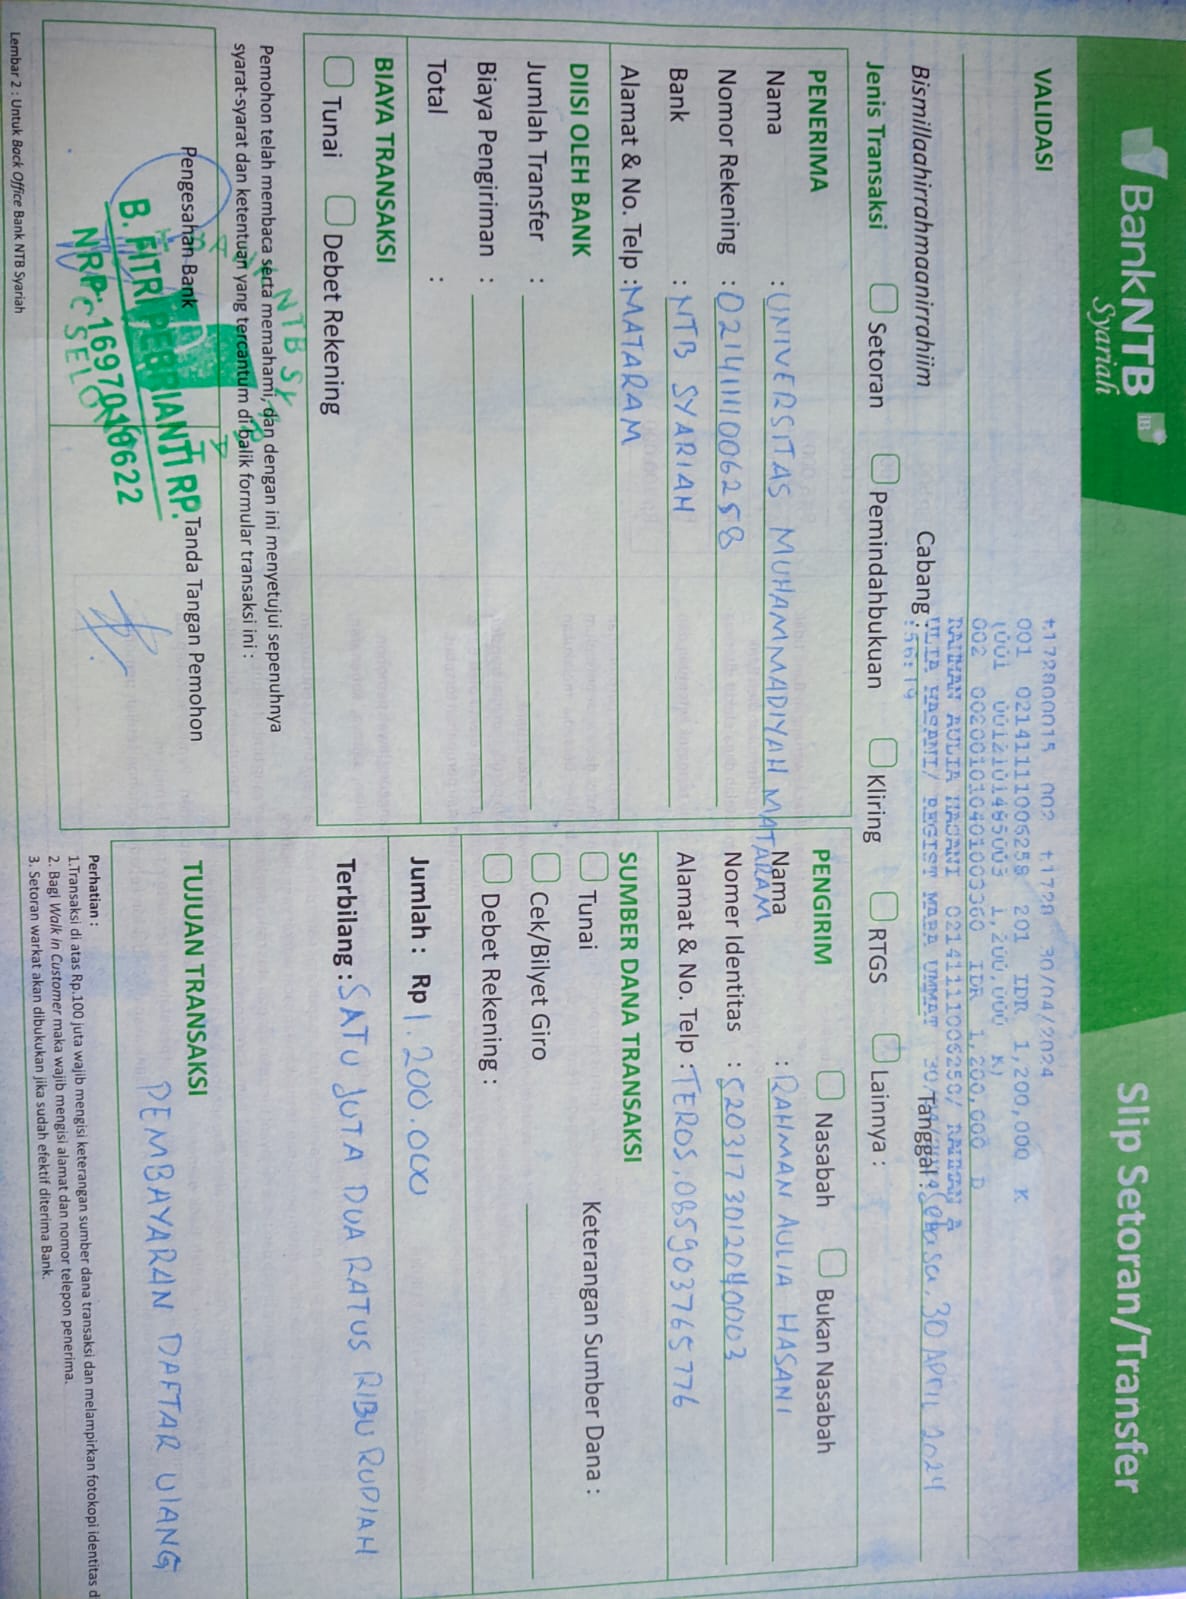 BankNTB iB
Syariah
Slip Setoran/Transfer
VALIDASI
t172800015 002 t1728 30/04/2024
001 02141111006258 201 IDR 1,200,000 K
1,200,000 K)
002 0020010104010003360 IDR 1,200,000 D
RAHMAN AULIA HASANI 02141111006258/ RAHMAN A
ULIA HASANI/ REGIST MABA UMMAT
:56:19
Bismillaahirrahmaanirrahiim
Cabang :
Tanggal : Selasa, 30 APril 2024
Jenis Transaksi Setoran Pemindahbukuan Kliring RTGS Lainnya :
PENERIMA
Nama : UNIVERSITAS MUHAMMADIYAH MATARAM
Nomor Rekening : 02141111006258
Bank : NTB SYARIAH
Alamat & No. Telp : MATARAM
PENGIRIM Nasabah Bukan Nasabah
Nama : RAHMAN AULIA HASANI
Nomer Identitas : 5203173012040003
Alamat & No. Telp : TEROS, 085903765776
DIISI OLEH BANK
Jumlah Transfer :
Biaya Pengiriman :
Total :
SUMBER DANA TRANSAKSI
Tunai Keterangan Sumber Dana :
Cek/Bilyet Giro
Debet Rekening :
BIAYA TRANSAKSI
Tunai Debet Rekening
Jumlah : Rp 1.200.000
Terbilang : SATU JUTA DUA RATUS RIBU RUPIAH
Pemohon telah membaca serta memahami, dan dengan ini menyetujui sepenuhnya
syarat-syarat dan ketentuan yang tercantum di balik formular transaksi ini :
Pengesahan Bank
NTB SY
B. FITRI PEBRIANTI RP.
NRP. 16970410622
SELONG
Tanda Tangan Pemohon
TUJUAN TRANSAKSI
PEMBAYARAN DAFTAR ULANG
Perhatian :
1.Transaksi di atas Rp.100 juta wajib mengisi keterangan sumber dana transaksi dan melampirkan fotokopi identitas d
2. Bagi Walk in Customer maka wajib mengisi alamat dan nomor telepon penerima.
3. Setoran warkat akan dibukukan jika sudah efektif diterima Bank.
Lembar 2 : Untuk Back Office Bank NTB Syariah